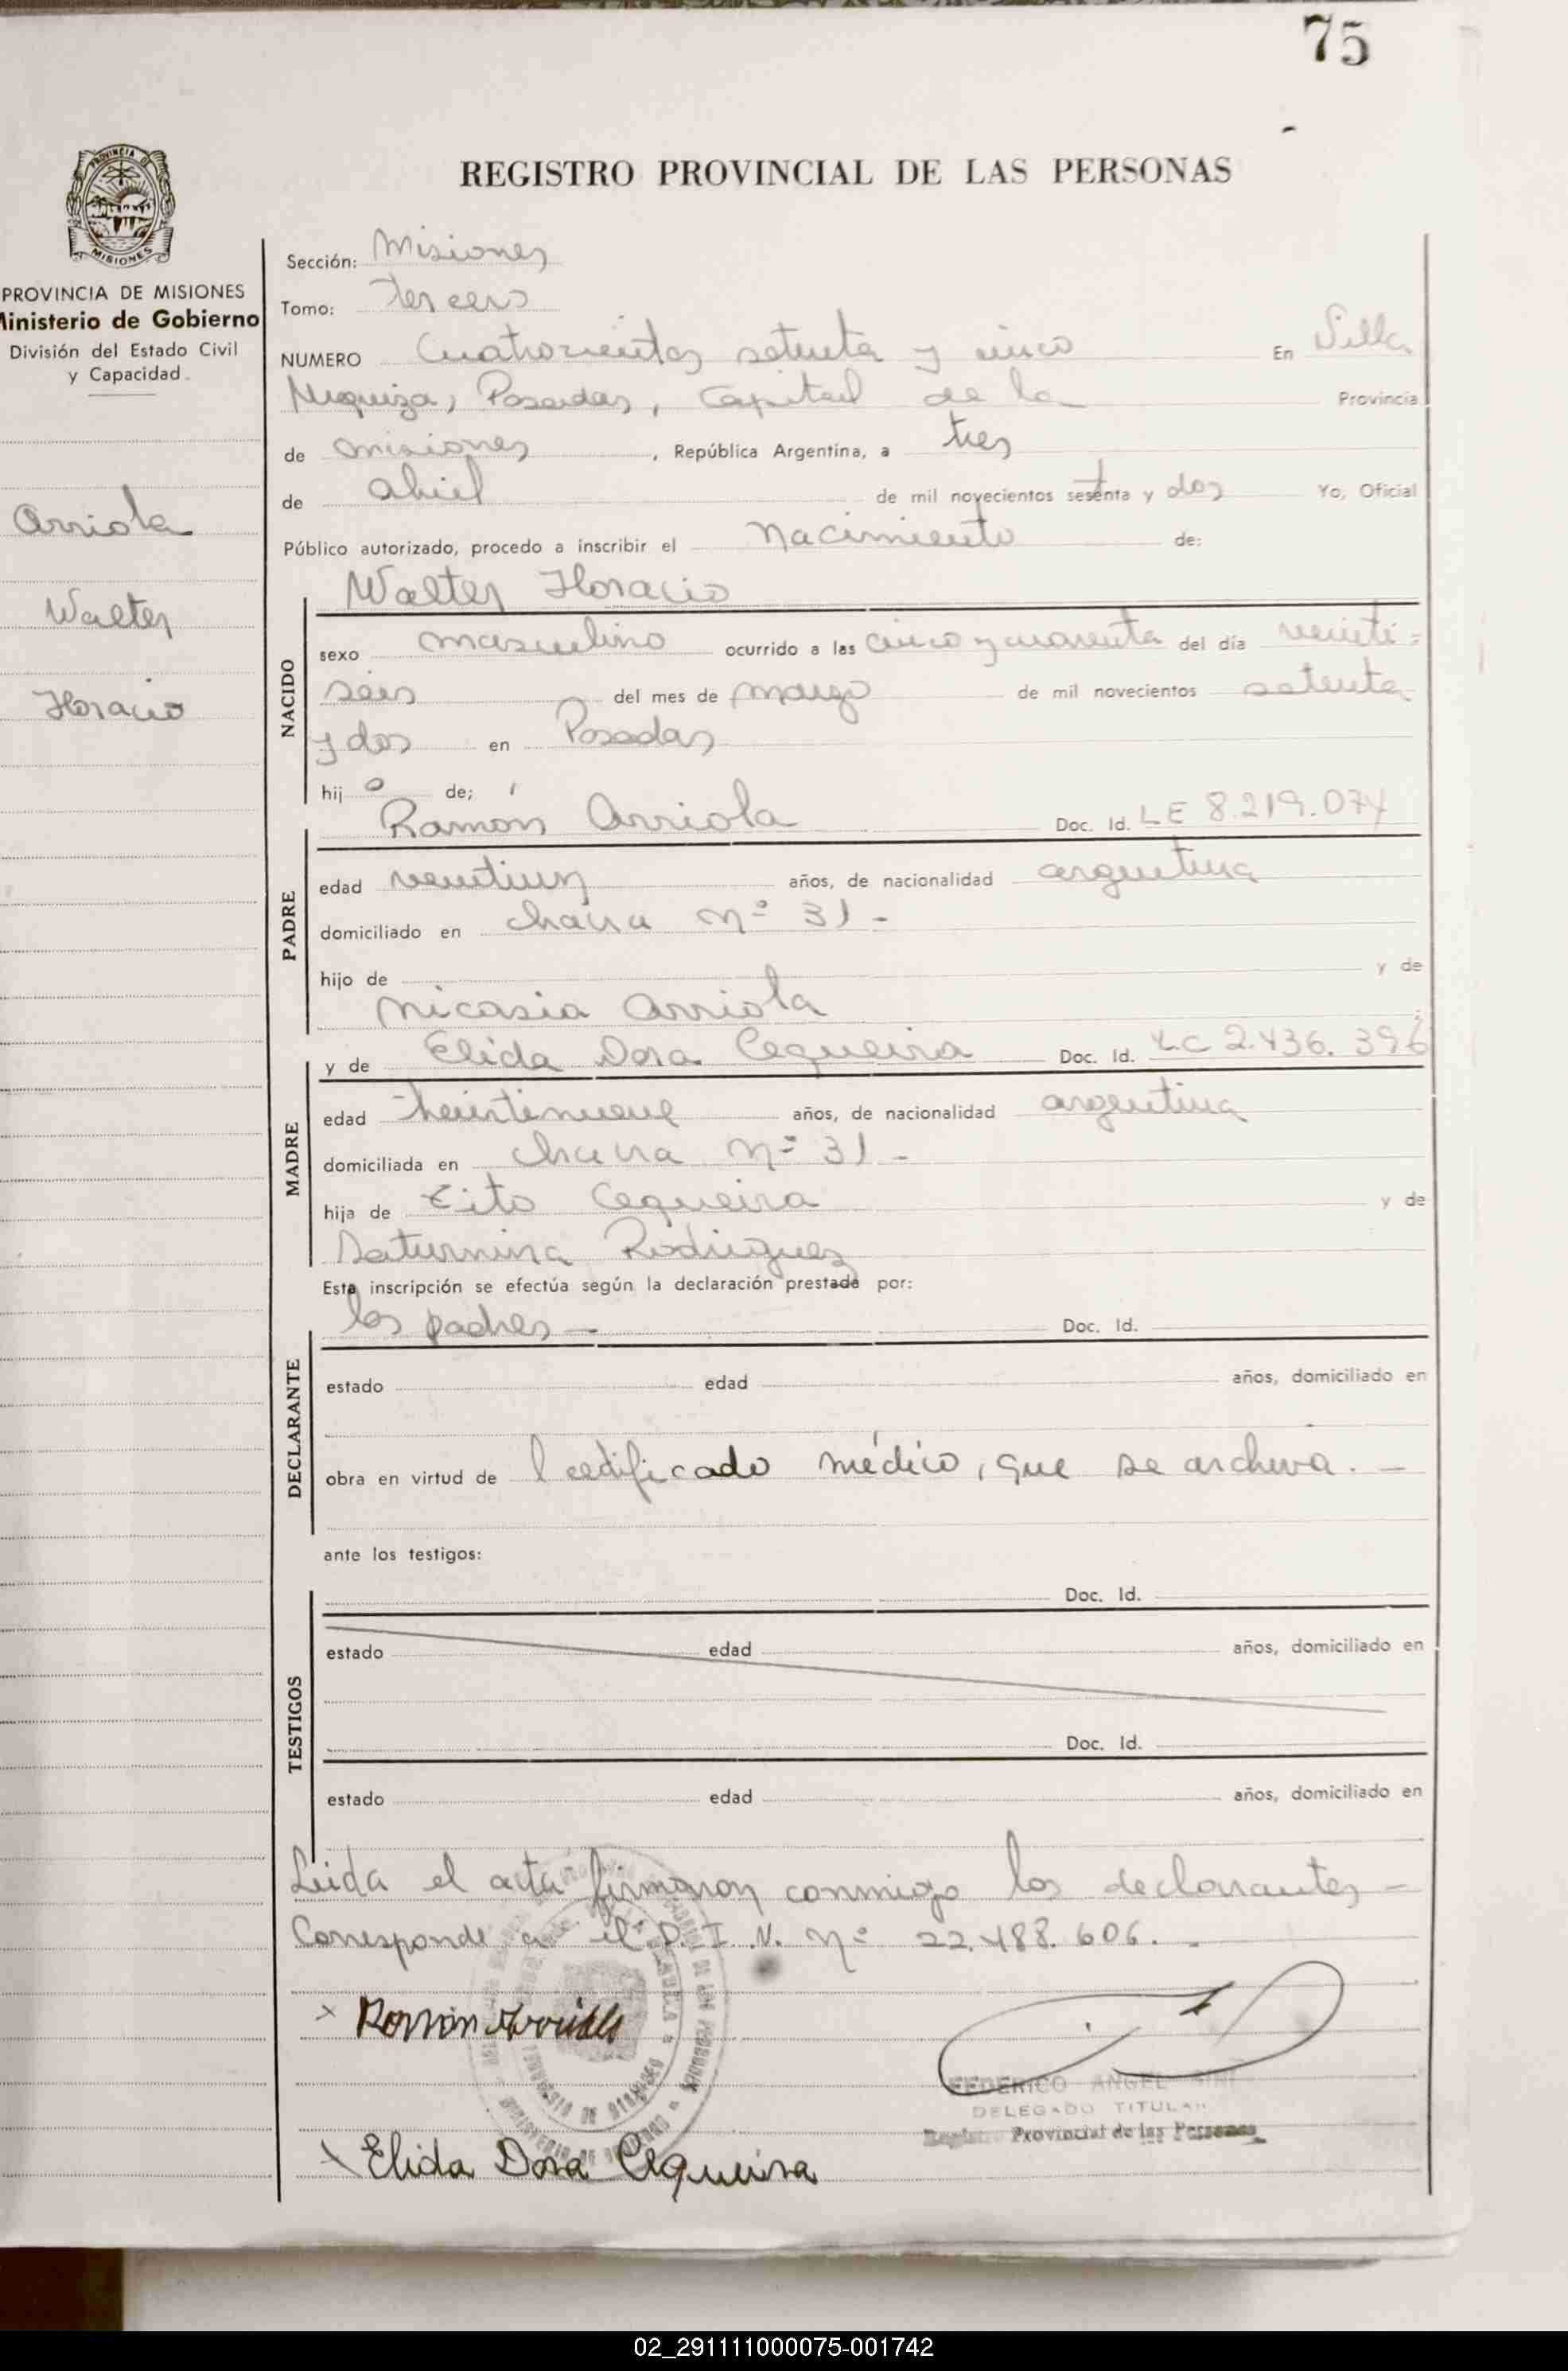 75
REGISTRO PROVINCIAL DE LAS PERSONAS
PROVINCIA DE MISIONES
MISIONES
PROVINCIA DE MISIONES
Ministerio de Gobierno
División del Estado Civil
y Capacidad
Arriola
Walter
Horacio
Sección: Misiones
Tomo: tercero
NUMERO Cuatrocientos setenta y cinco En Villa
Urquiza, Posadas, Capital de la Provincia
de misiones, República Argentina, a tres
de abril de mil novecientos sesenta y dos Yo, Oficial
Público autorizado, procedo a inscribir el nacimiento de:
NACIDO
Walter Horacio
sexo masculino ocurrido a las cinco y cuarenta del día veinti=
seis del mes de marzo de mil novecientos setenta
y dos en Posadas
hijo de;
PADRE
Ramón Arriola Doc. Id. LE 8.219.074
edad veintiun años, de nacionalidad argentina
domiciliado en chacra nº 31 -
hijo de y de
nicasia Arriola
MADRE
y de Elida Dora Cequeira Doc. Id. L.C 2.436.396
edad treintinueve años, de nacionalidad argentina
domiciliada en chacra nº 31 -
hija de Tito Cequeira y de
Saturnina Rodriguez
Esta inscripción se efectúa según la declaración prestada por:
DECLARANTE
los padres — Doc. Id.
estado edad años, domiciliado en
obra en virtud de l certificado médico, que se archiva. -
ante los testigos:
TESTIGOS
Doc. Id.
estado edad años, domiciliado en
Doc. Id.
estado edad años, domiciliado en
Leida el acta firmaron conmigo los declarantes -
Corresponde a el D.I.N. nº 22.488.606. -
x Ramón Arriola
FEDERICO ANGEL
DELEGADO TITULAR
Registro Provincial de las Personas
Elida Dora Cequeira
02_291111000075-001742